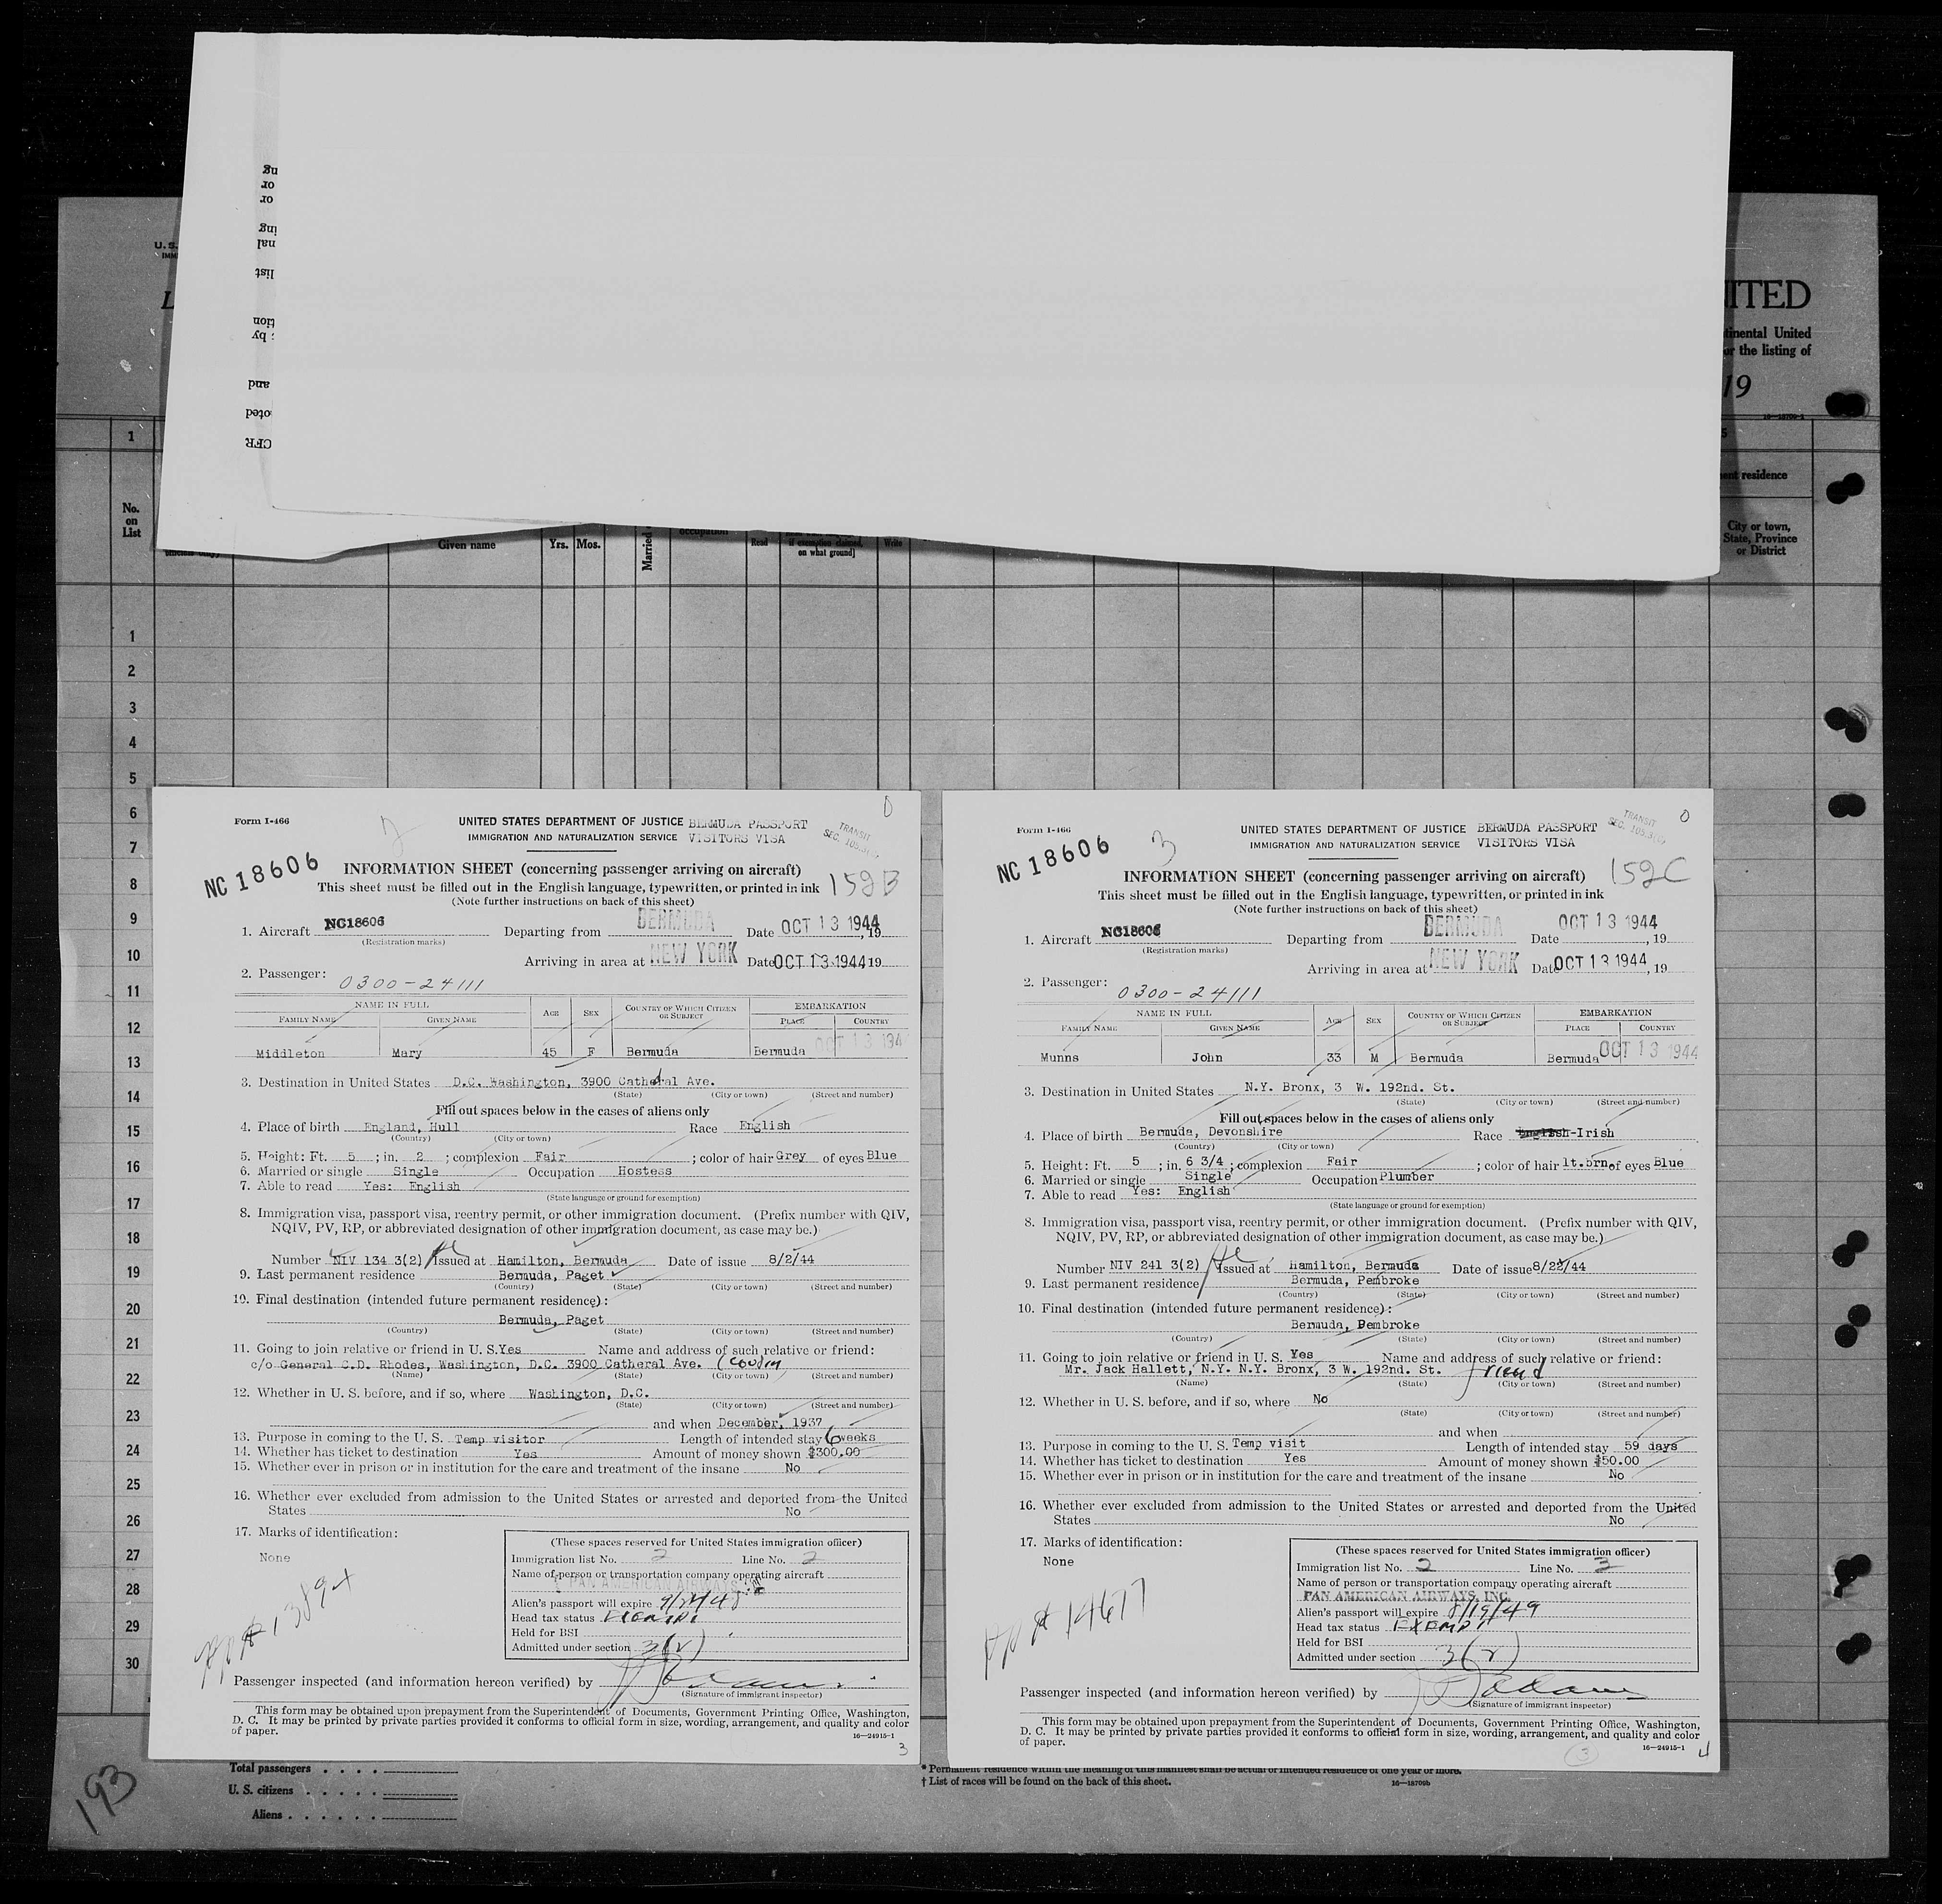 ng
or
or
ing
nal
list
tion
; by
and
oted
CFR
U. S.
IMM
L
ITED
tinental United
or the listing of
19
16—18709-1
1
5
ent residence
No.
on
List
Given name
Yrs.
Mos.
Married
occupation
Read
if exemption claimed,
on what ground]
Write
City or town,
State, Province
or District
1
2
3
4
5
6
7
8
9
10
11
12
13
14
15
16
17
18
19
20
21
22
23
24
25
26
27
28
29
30
Form I-466
2
0
UNITED STATES DEPARTMENT OF JUSTICE BERMUDA PASSPORT
IMMIGRATION AND NATURALIZATION SERVICE VISITORS VISA
TRANSIT
NC 18606
INFORMATION SHEET (concerning passenger arriving on aircraft)
This sheet must be filled out in the English language, typewritten, or printed in ink 159B
(Note further instructions on back of this sheet)
1. Aircraft NC18606 Departing from BERMUDA Date OCT 13 1944, 19
(Registration marks)
Arriving in area at NEW YORK Date OCT 13 1944 19
2. Passenger: 0300-24111
NAME IN FULL AGE SEX COUNTRY OF WHICH CITIZEN OR SUBJECT EMBARKATION
FAMILY NAME GIVEN NAME PLACE COUNTRY
Middleton Mary 45 F Bermuda Bermuda OCT 13 194
3. Destination in United States D.C. Washington, 3900 Cathedral Ave.
(State) (City or town) (Street and number)
Fill out spaces below in the cases of aliens only
4. Place of birth England, Hull Race English
(Country) (City or town)
5. Height: Ft. 5 ; in. 2 ; complexion Fair ; color of hair Grey of eyes Blue
6. Married or single Single Occupation Hostess
7. Able to read Yes: English
(State language or ground for exemption)
8. Immigration visa, passport visa, reentry permit, or other immigration document. (Prefix number with QIV,
NQIV, PV, RP, or abbreviated designation of other immigration document, as case may be.)
Number NIV 134 3(2) Issued at Hamilton, Bermuda Date of issue 8/2/44
9. Last permanent residence Bermuda, Paget
(Country) (State) (City or town) (Street and number)
10. Final destination (intended future permanent residence):
Bermuda, Paget
(Country) (State) (City or town) (Street and number)
11. Going to join relative or friend in U. S. Yes Name and address of such relative or friend:
c/o General C.D. Rhodes, Washington, D.C. 3900 Catheral Ave. (cousin
(Name) (State) (City or town) (Street and number)
12. Whether in U. S. before, and if so, where Washington, D.C.
(State) (City or town) (Street and number)
and when December, 1937
13. Purpose in coming to the U. S. Temp visitor Length of intended stay 6 weeks
14. Whether has ticket to destination Yes Amount of money shown $300.00
15. Whether ever in prison or in institution for the care and treatment of the insane No
16. Whether ever excluded from admission to the United States or arrested and deported from the United
States No
17. Marks of identification:
None
(These spaces reserved for United States immigration officer)
Immigration list No. 2 Line No. 2
Name of person or transportation company operating aircraft
PAN AMERICAN AIRWAYS
Alien's passport will expire
Head tax status Exempt
Held for BSI
Admitted under section 3(2)
Passenger inspected (and information hereon verified) by
(Signature of immigrant inspector)
This form may be obtained upon prepayment from the Superintendent of Documents, Government Printing Office, Washington,
D. C. It may be printed by private parties provided it conforms to official form in size, wording, arrangement, and quality and color
of paper.
16—24915-1
3
Form I-466
3
0
UNITED STATES DEPARTMENT OF JUSTICE BERMUDA PASSPORT
IMMIGRATION AND NATURALIZATION SERVICE VISITORS VISA
TRANSIT
NC 18606
INFORMATION SHEET (concerning passenger arriving on aircraft) 159C
This sheet must be filled out in the English language, typewritten, or printed in ink
(Note further instructions on back of this sheet)
1. Aircraft NC18606 Departing from BERMUDA Date OCT 13 1944, 19
(Registration marks)
Arriving in area at NEW YORK Date OCT 13 1944, 19
2. Passenger: 0300-24111
NAME IN FULL AGE SEX COUNTRY OF WHICH CITIZEN OR SUBJECT EMBARKATION
FAMILY NAME GIVEN NAME PLACE COUNTRY
Munns John 33 M Bermuda Bermuda OCT 13 1944
3. Destination in United States N.Y. Bronx, 3 W. 192nd. St.
(State) (City or town) (Street and number)
Fill out spaces below in the cases of aliens only
4. Place of birth Bermuda, Devonshire Race English-Irish
(Country) (City or town)
5. Height: Ft. 5 ; in. 6 3/4 ; complexion Fair ; color of hair lt.brn. of eyes Blue
6. Married or single Single Occupation Plumber
7. Able to read Yes: English
(State language or ground for exemption)
8. Immigration visa, passport visa, reentry permit, or other immigration document. (Prefix number with QIV,
NQIV, PV, RP, or abbreviated designation of other immigration document, as case may be.)
Number NIV 241 3(2) Issued at Hamilton, Bermuda Date of issue 8/22/44
9. Last permanent residence Bermuda, Pembroke
(Country) (State) (City or town) (Street and number)
10. Final destination (intended future permanent residence):
Bermuda, Pembroke
(Country) (State) (City or town) (Street and number)
11. Going to join relative or friend in U. S. Yes Name and address of such relative or friend:
Mr. Jack Hallett, N.Y. N.Y. Bronx, 3 W. 192nd. St. friend
(Name) (State) (City or town) (Street and number)
12. Whether in U. S. before, and if so, where No
(State) (City or town) (Street and number)
and when
13. Purpose in coming to the U. S. Temp visit Length of intended stay 59 days
14. Whether has ticket to destination Yes Amount of money shown $50.00
15. Whether ever in prison or in institution for the care and treatment of the insane No
16. Whether ever excluded from admission to the United States or arrested and deported from the United
States No
17. Marks of identification:
None
14677
(These spaces reserved for United States immigration officer)
Immigration list No. 2 Line No. 3
Name of person or transportation company operating aircraft
PAN AMERICAN AIRWAYS, INC.
Alien's passport will expire 8/19/49
Head tax status Exempt
Held for BSI
Admitted under section 3(2)
Passenger inspected (and information hereon verified) by
(Signature of immigrant inspector)
This form may be obtained upon prepayment from the Superintendent of Documents, Government Printing Office, Washington,
D. C. It may be printed by private parties provided it conforms to official form in size, wording, arrangement, and quality and color
of paper.
3
16—24915-1
4
193
Total passengers . . . .
U. S. citizens . . . . .
Aliens . . . . . .
* Permanent residence within the meaning of this manifest shall be actual or intended residence of one year or more.
† List of races will be found on the back of this sheet.
16—18709b